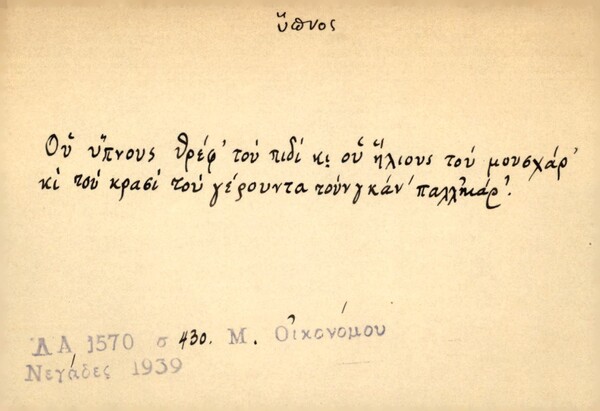 ὕπνος
Οὑ ὕπνους θρέφ' τοὺ πιδί κι οὑ ἥλιους τοὺ μουσχάρ'
κὶ τοὺ κρασὶ τοὺ γέρουντα τοὺνγκάν' παλληκάρ'.
ΛΑ 1570 σ 430. Μ. Οἰκονόμου
Νεγάδες 1939